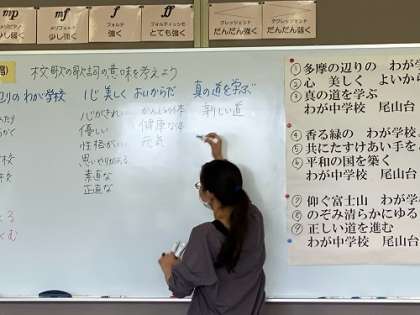 mp
メゾピアノ
少し弱く
mf
メゾフォルテ
少し強く
f
フォルテ
強く
ff
フォルティッシモ
とても強く
クレッシェンド
だんだん強く
デクレッシェンド
だんだん弱く
校歌の歌詞の意味を考えよう
辺りのわが学校
心美しく よいからだ
真の道を学ぶ
心がきれい
優しい
性格がいい
思いやりがある
素直な
正直な
健康な体
元気
新しい道
①多摩の辺りの わが学
②心 美しく よいか
③真の道を学ぶ
わが中学校 尾山台
④香る緑の わが学校
⑤共にたすけあい手を
⑥平和の国を築く
わが中学校 尾山台
⑦仰ぐ富士山 わが学
⑧のぞみ清らかにゆる
⑨正しい道を進む
わが中学校 尾山台